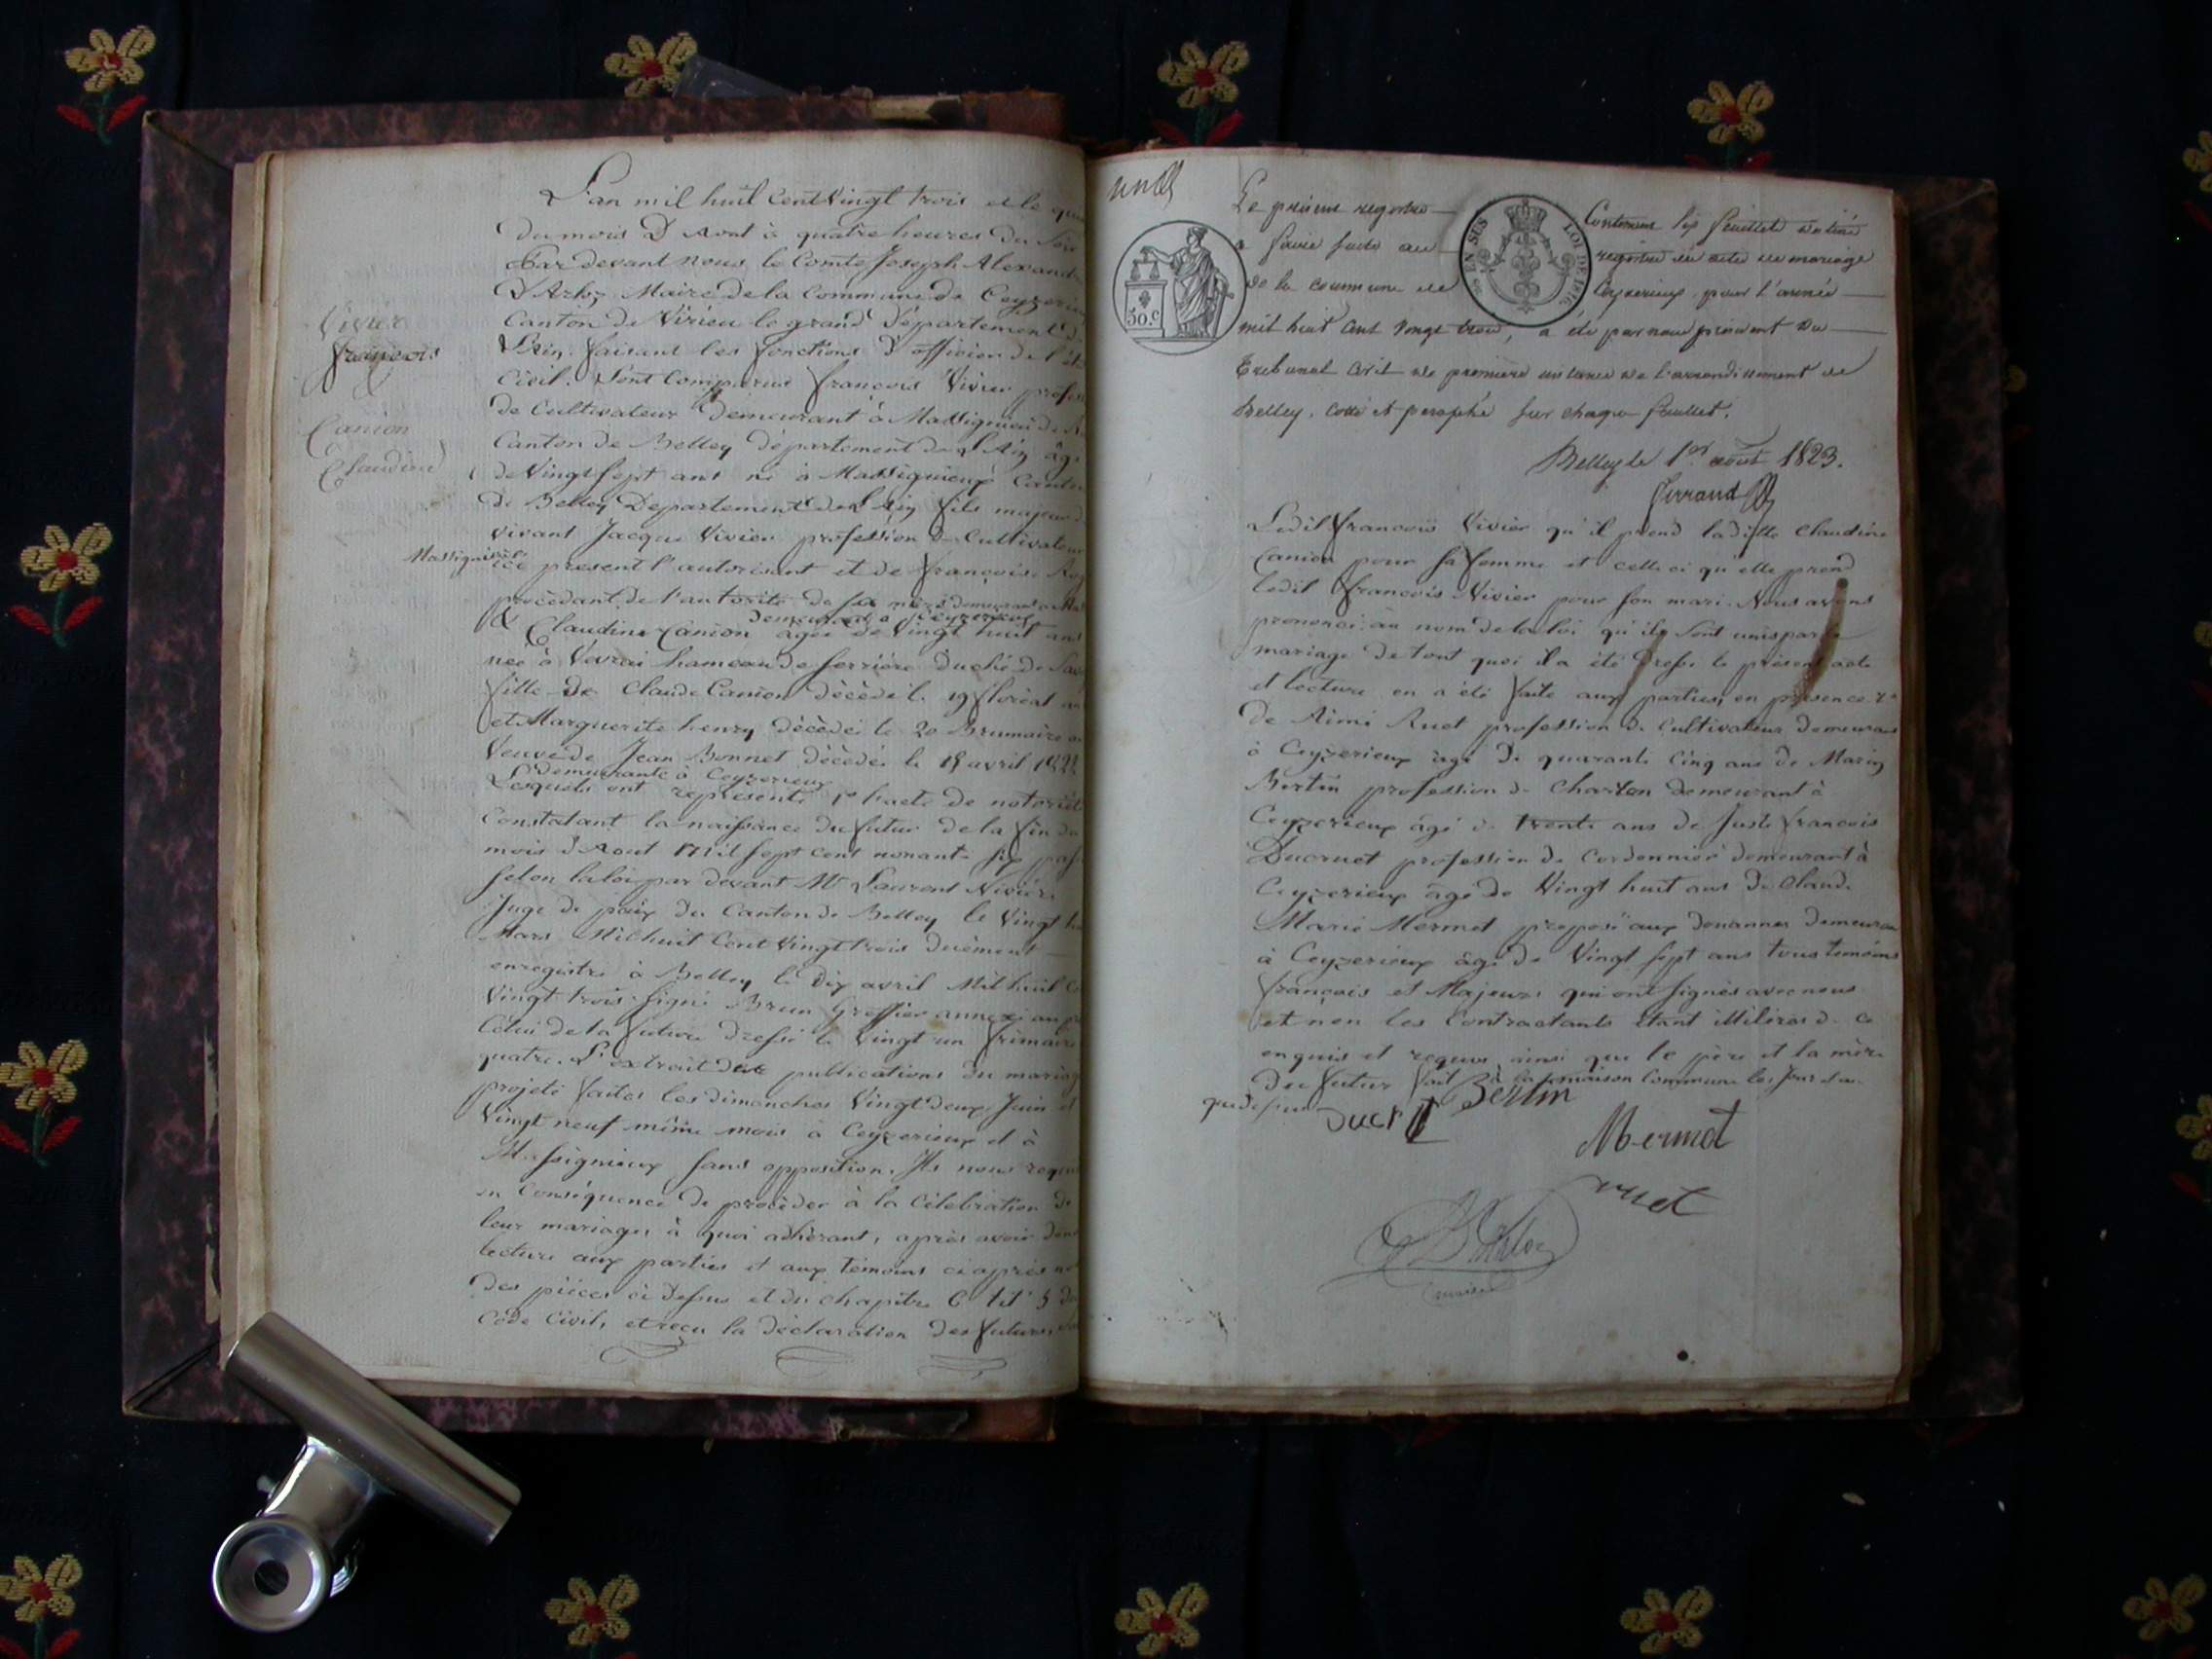 L'an mil huit Cent Vingt trois et le
du mois D'Aout à quatre heures du Soir
Par devant Nous le Comte Joseph Alexandre
D'Arloz Maire de la Commune de Ceyzerieux
Canton de Virieu le grand Département de
L'Ain faisant les fonctions D'officier de l'état
Civil. Sont Comparus François Vivier
de Cultivateur demeurant à Massignieu de
Canton de Belley departement de L'Ain âgé
de Vingt sept ans né à Massignieux Canton
de Belley Departement de L'Ain fils majeur
vivant Jacque Vivier profession de Cultivateur
Massignieu
ici present l'autorisant et de françoise
procedant de l'autorité de ses
demeurant à Ceyzerieux
& Claudine Canion agée de Vingt huit ans
née à hameau de Serriere Duché de
fille de Claude Canion décédé le 19 floréal
et Marguerite henry décédée le 20 Brumaire
Veuve de Jean Bonnet décédé le 18 avril 1822
demeurante à Ceyzerieux
Lesquels ont representé 1° l'acte de notoriété
Constatant la naissance du futur de la fin du
mois d'Aout Mil sept cent nonante six
selon la loi par devant Mr Laurent
Juge de paix du Canton de Belley le Vingt
Mars Mil huit Cent Vingt trois duëment
enregistré à Belley le Dix avril Mil huit
Vingt trois signé Brun Greffier annexé au
Celui de la future Dressé le Vingt un frimaire
quatre. L'extrait des publications du mariage
projeté faites les dimanches Vingt Deux Juin et
Vingt neuf même mois à Ceyzerieux et à
Massignieux sans opposition. Ils nous
en Conséquence de procéder à la Célébration de
leur mariage, à quoi adhérant, après avoir
lecture aux parties et aux Temoins ci après
des pièces ci Dessus et du chapitre 6 tit 5 du
Code Civil, et reçu la déclaration des futurs,
Vivier
françois
&
Canion
Claudine
un
Le présent registre Contenant six feuillets destinés
à servir au registre des actes de mariage
de la commune de Ceyzerieux, pour l'année
mil huit cent vingt trois, a été par nous président du
Tribunal civil de première instance de l'arrondissement de
Belley, cotté et paraphé sur chaque feuillet.
Belley le 1er août 1823.
50.c
EN SUS
LOI DE 1816.
Ledit françois Vivier qu'il prend ladite Claudine
Canion pour sa femme et celle ci qu'elle prend
ledit françois Vivier pour son mari. Nous avons
prononcé au nom de la loi qu'ils sont unis par le
mariage de tout quoi il a été Dressé le présent acte
et lecture en a été faite aux parties, en présence
de Aimé Ruet profession de Cultivateur demeurant
à Ceyzerieux âgé de quarante Cinq ans de Marin
Bertin profession de Charlon demeurant à
Ceyzerieux âgé de trente ans de Juste francois
Ducruet profession de Cordonnier demeurant à
Ceyzerieux âgé de Vingt huit ans De Claude
Marie Mermet preposé aux douannes demeurant
à Ceyzerieux âgé de Vingt sept ans tous temoins
français et Majeurs qui ont signés avec nous
et non les Contractants étant illitérés de ce
enquis et requis ainsi que le père et la mère
du futur fait à la maison Commune les Jour et an
que dessus
Bertin
Mermet
ruet
D'Arloz
maire